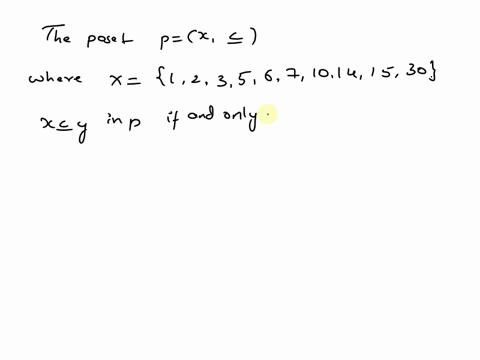 The poset p=(x, ≤)
where x = {1, 2, 3, 5, 6, 7, 10, 14, 15, 30}
x ≤ y in p if and only